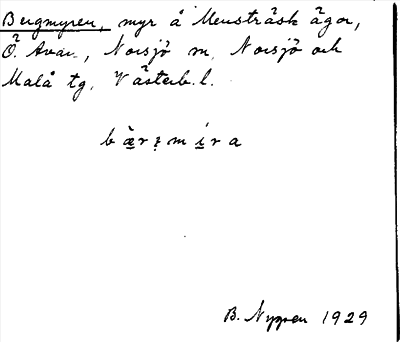 Bergmyren, myr å Mensträsk ägor,
Ö. Avan, Norsjö sn, Norsjö och
Malå tg, Västerb. l.
bæ̀rm íra
B. Nygren 1929